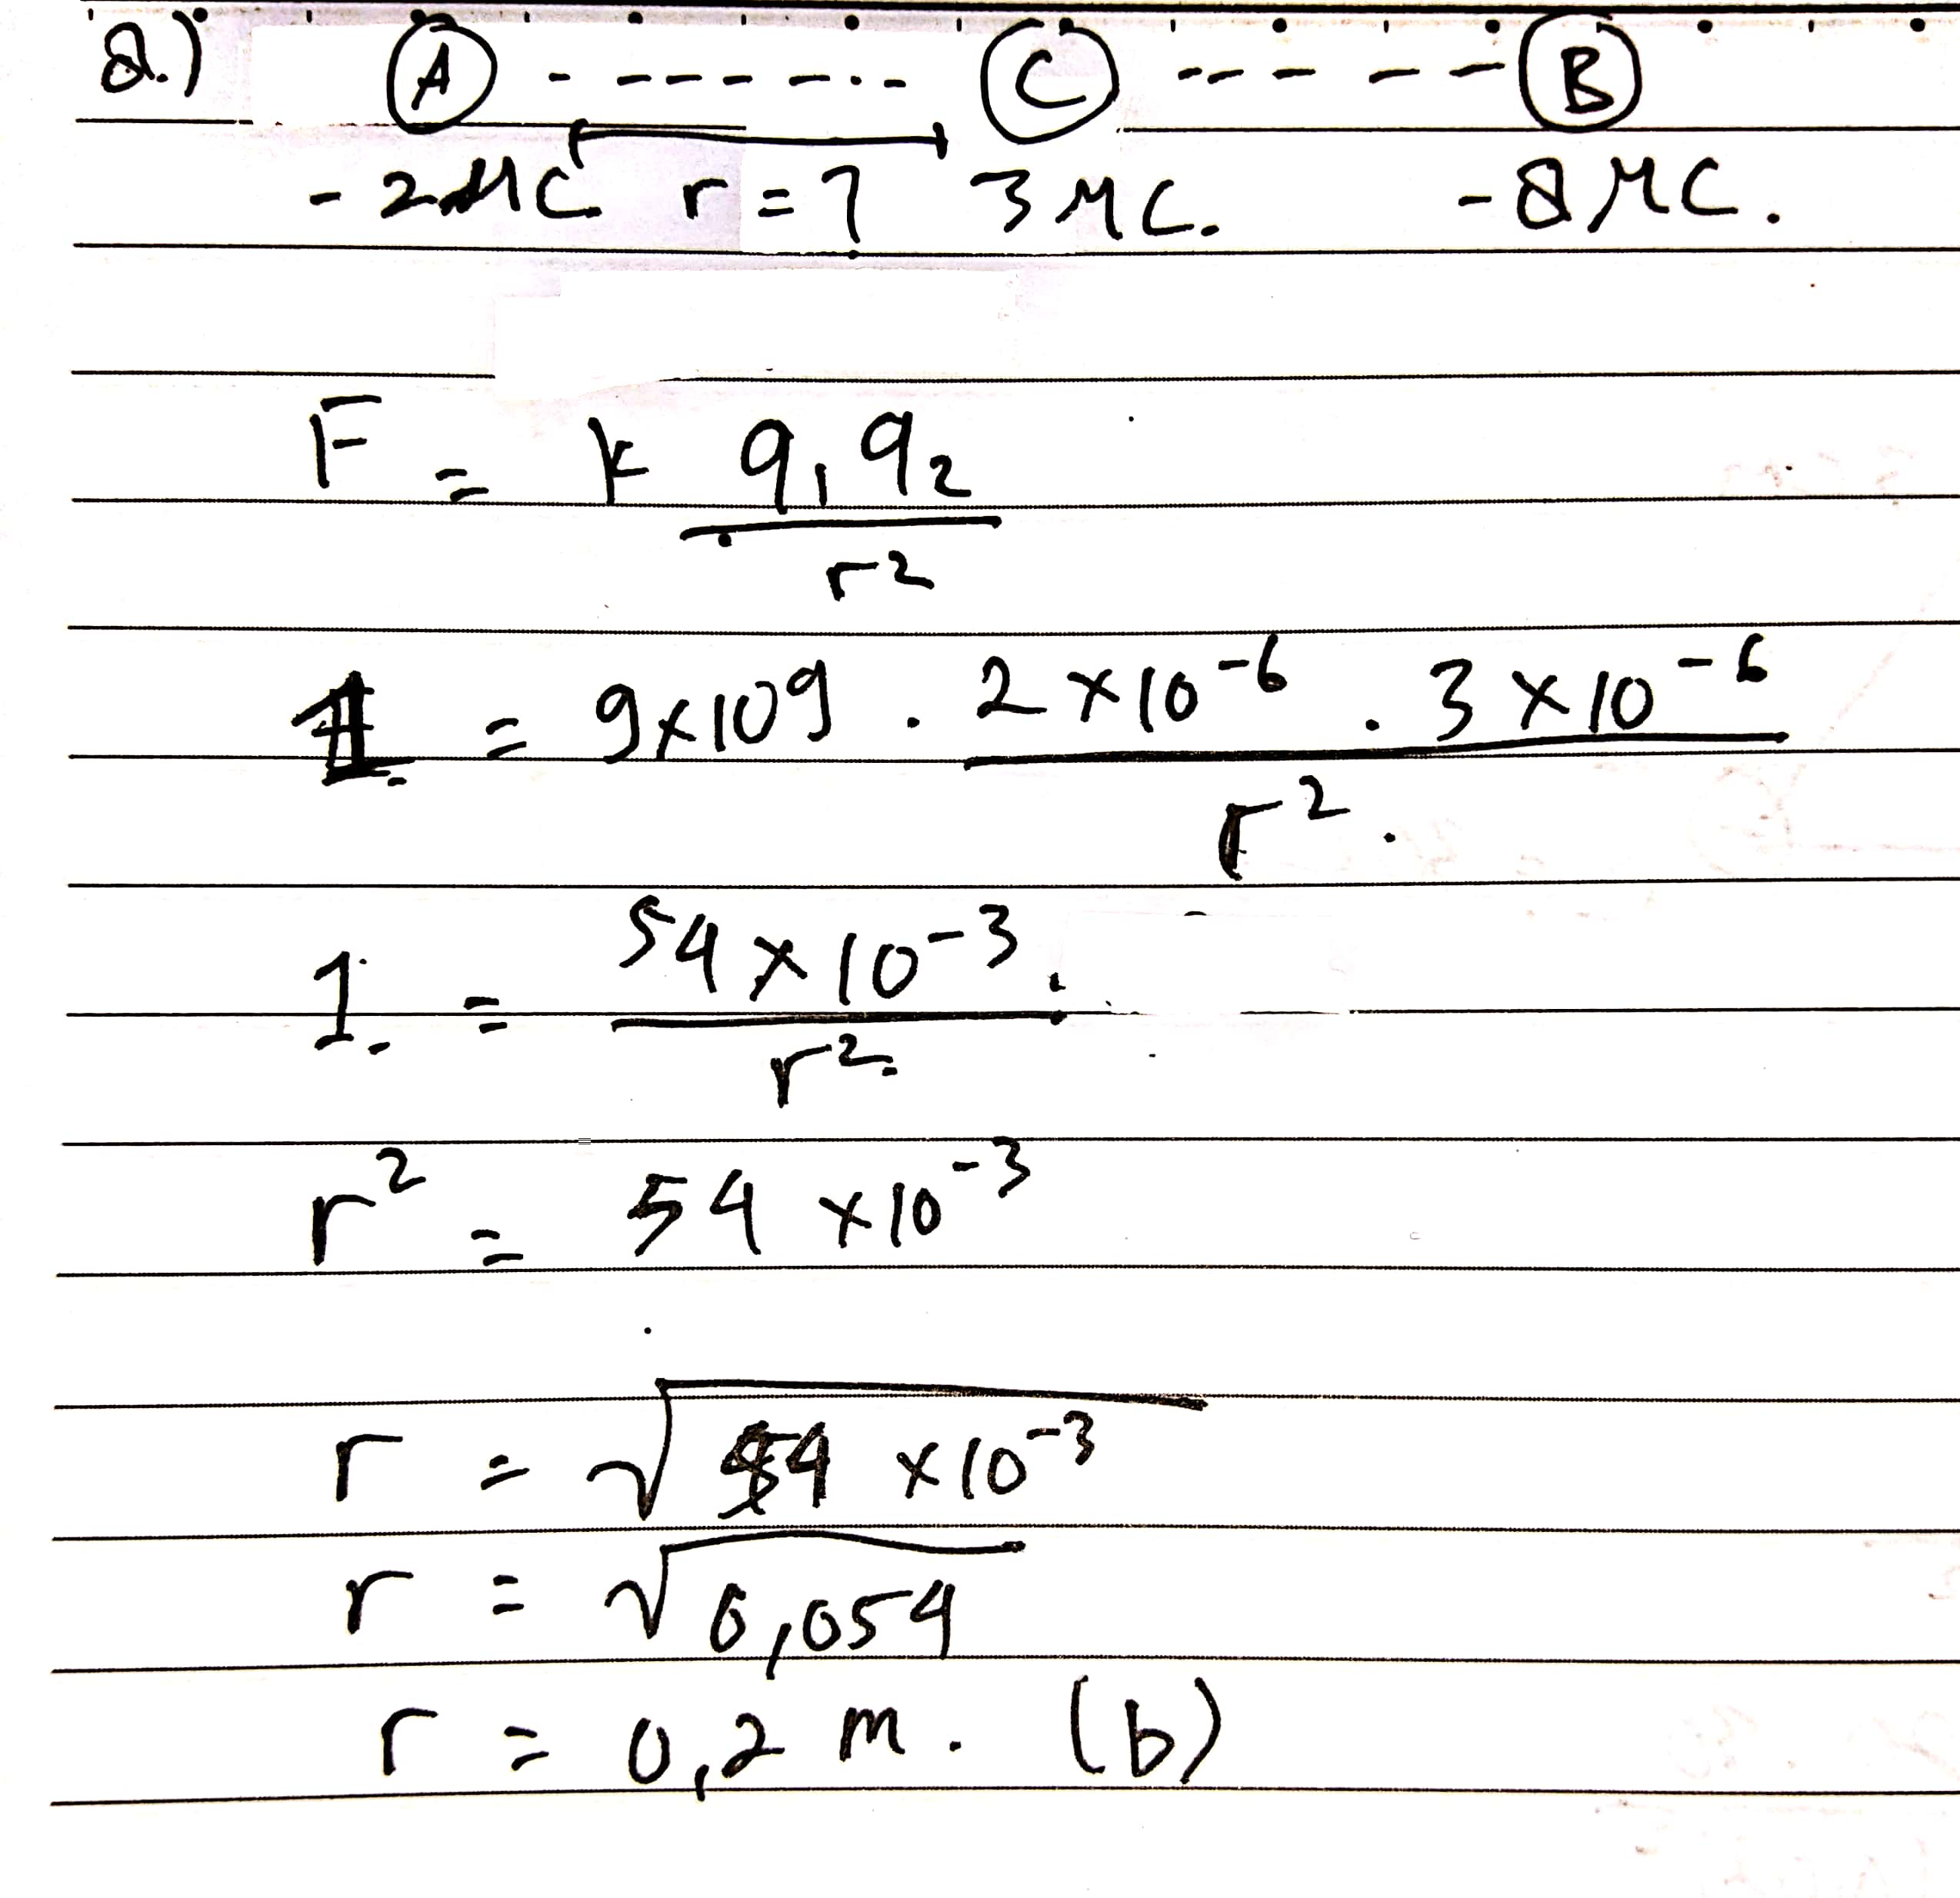 8.) A - - - - - - - - C - - - - - - B
-2μC r = ? 3 μC. -8 μC.
F = k q1 q2 / r²
1 = 9×10⁹ . 2 ×10⁻⁶ . 3 ×10⁻⁶ / r².
1. = 54 × 10⁻³. / r²
r² = 54 ×10⁻³
r = √54 ×10⁻³
r = √0,054
r = 0,2 m. (b)